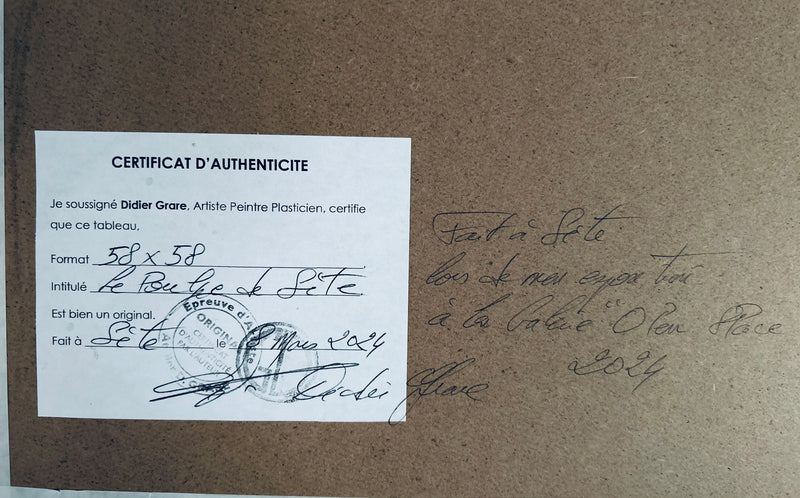 CERTIFICAT D'AUTHENTICITE
Je soussigné Didier Grare, Artiste Peintre Plasticien, certifie
que ce tableau,
Format 58 x 58
Intitulé Le Poulpe de Sète
Est bien un original.
Fait à Sète le 8 Mars 2024
Epreuve d'A
ORIGINAL
Didier Grare
Fait à Sète
lors de mon exposition
à la Galerie "Open Space
2024